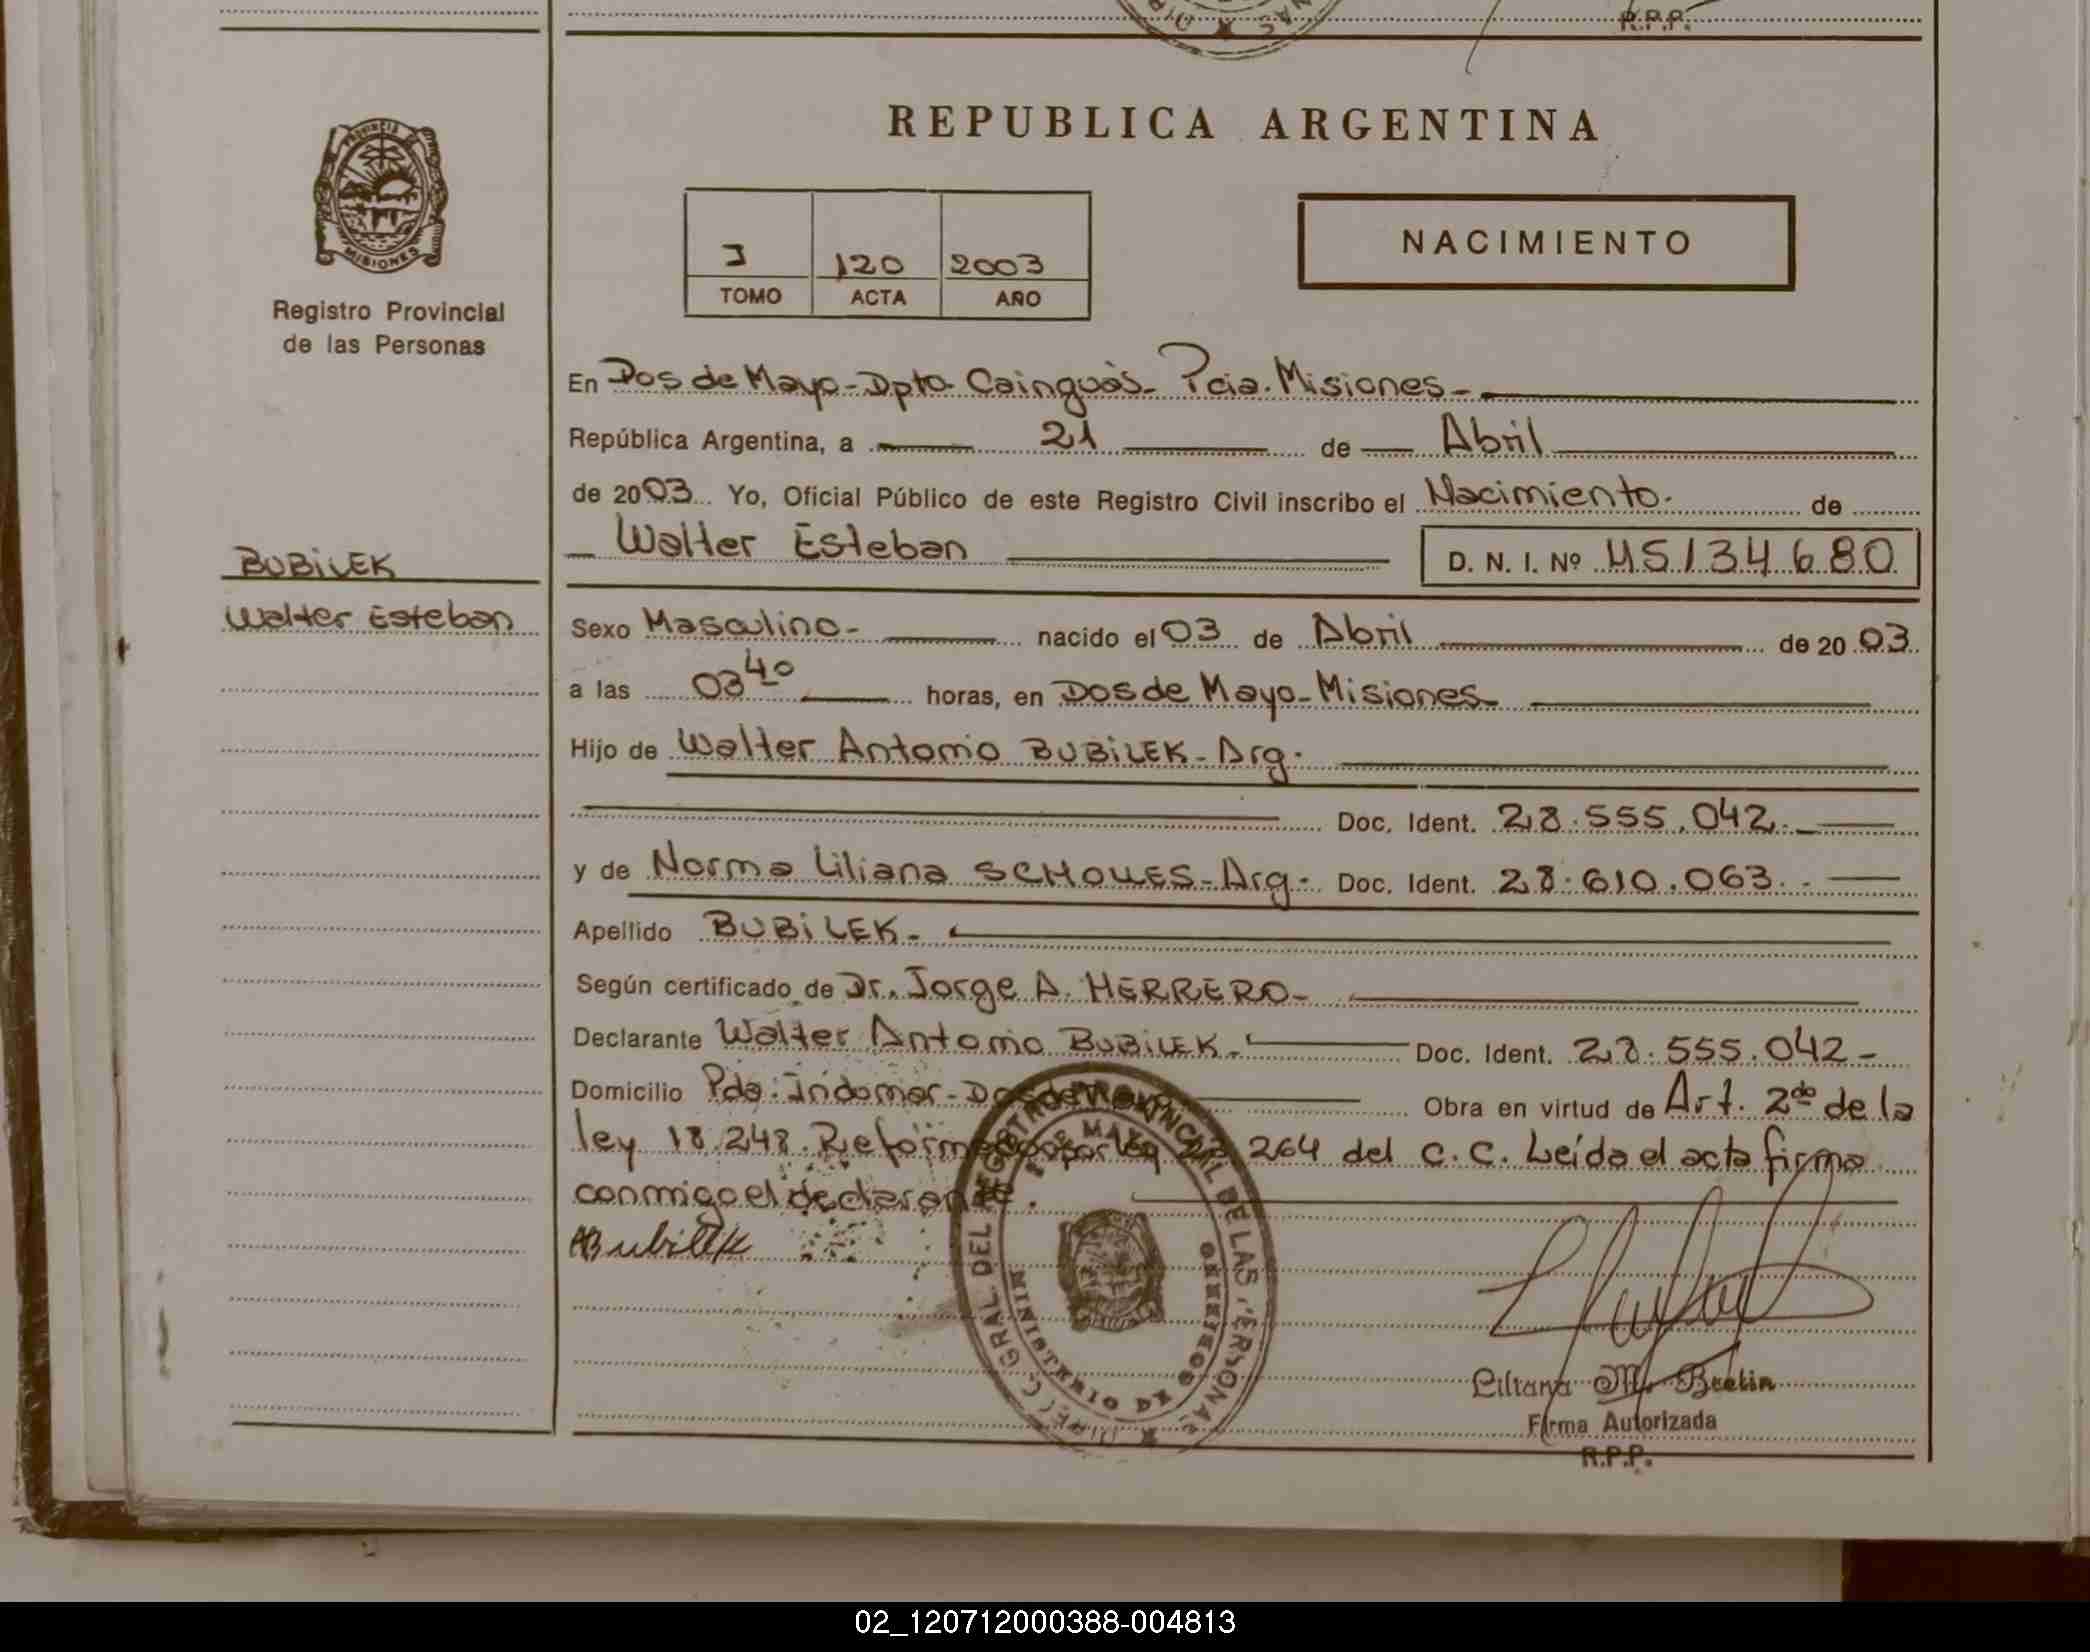 R.P.P.
PROVINCIA DE
MISIONES
Registro Provincial
de las Personas
REPUBLICA ARGENTINA
NACIMIENTO
J 120 2003
TOMO ACTA AÑO
En Dos de Mayo-Dpto. Cainguás- Pcia. Misiones-
República Argentina, a 21 de Abril
de 2003 Yo, Oficial Público de este Registro Civil inscribo el Nacimiento. de
Walter Esteban D. N. I. Nº 45134680
BUBiLEK
Walter Esteban
Sexo Masculino- nacido el 03 de Abril de 2003
a las 03 40 horas, en Dos de Mayo-Misiones
Hijo de Walter Antonio BUBiLEK- Arg.
Doc. Ident. 28.555.042.
y de Norma Liliana Arg. Doc. Ident. 28.610.063.
Apellido BUBiLEK.
Según certificado de Dr. Jorge A. HERRERO-
Declarante Walter Antonio BUBiLEK. Doc. Ident. 28.555.042-
Domicilio Pda. Indomar-Dos de Mayo Obra en virtud de Art. 2do de la
ley 18.248. Reformado por ley 23.264 del C.C. Leída el acta firma
conmigo el declarante.
Bubilek
DIRECC GRAL DEL REGISTRO PROVINCIAL DE LAS PERSONAS
MINISTERIO DE GOBIERNO
Liliana M. Brelin
Firma Autorizada
R.P.P.
02_120712000388-004813